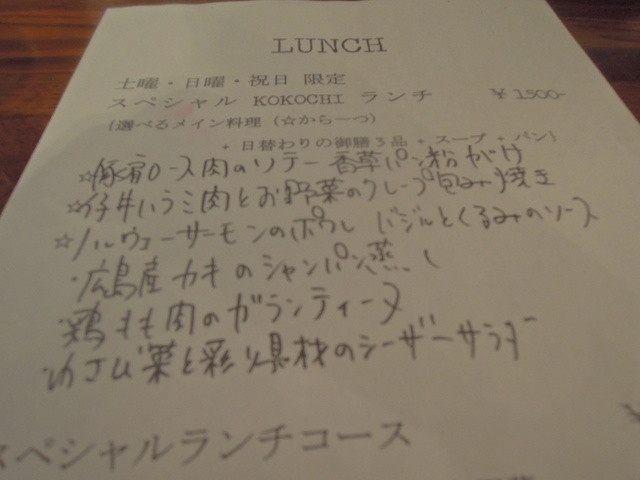 LUNCH
土曜・日曜・祝日 限定
スペシャル KOKOCHI ランチ ￥1500-
(選べるメイン料理 (☆から一つ)
+ 日替わりの御膳3品・スープ・パン)
☆豚肩ロース肉のソテー 香草パン粉がけ
☆仔牛ハラミ肉とお野菜のクレープ包み焼き
☆ノルウェーサーモンのポワレ バジルとくるみのソース
・広島産カキのシャンパン蒸し
・鶏もも肉のガランティーヌ
・わさび菜と彩り具材のシーザーサラダ
スペシャルランチコース ￥